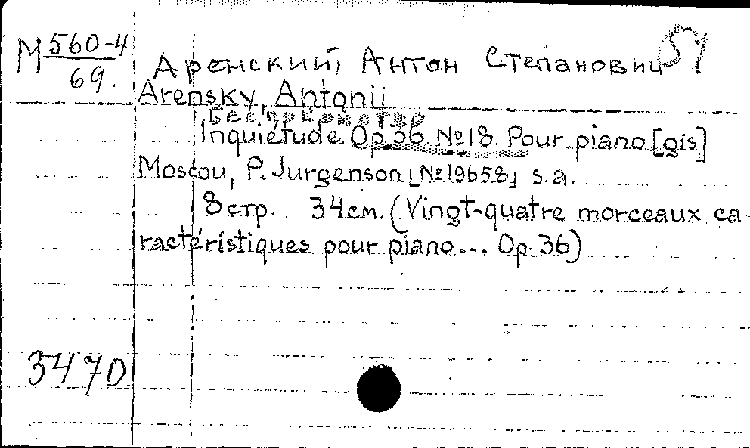 М 560-4
69.
51
Аренский, Антон Степанович
Arensky, Antonii
Беспокойство
Inquiétude. Op 36 №18. Pour piano [gis]
Moscou, P. Jurgenson [№19658] s.a.
8 стр. 34 см. (Vingt-quatre morceaux ca-
ractéristiques pour piano... Op. 36)
3470